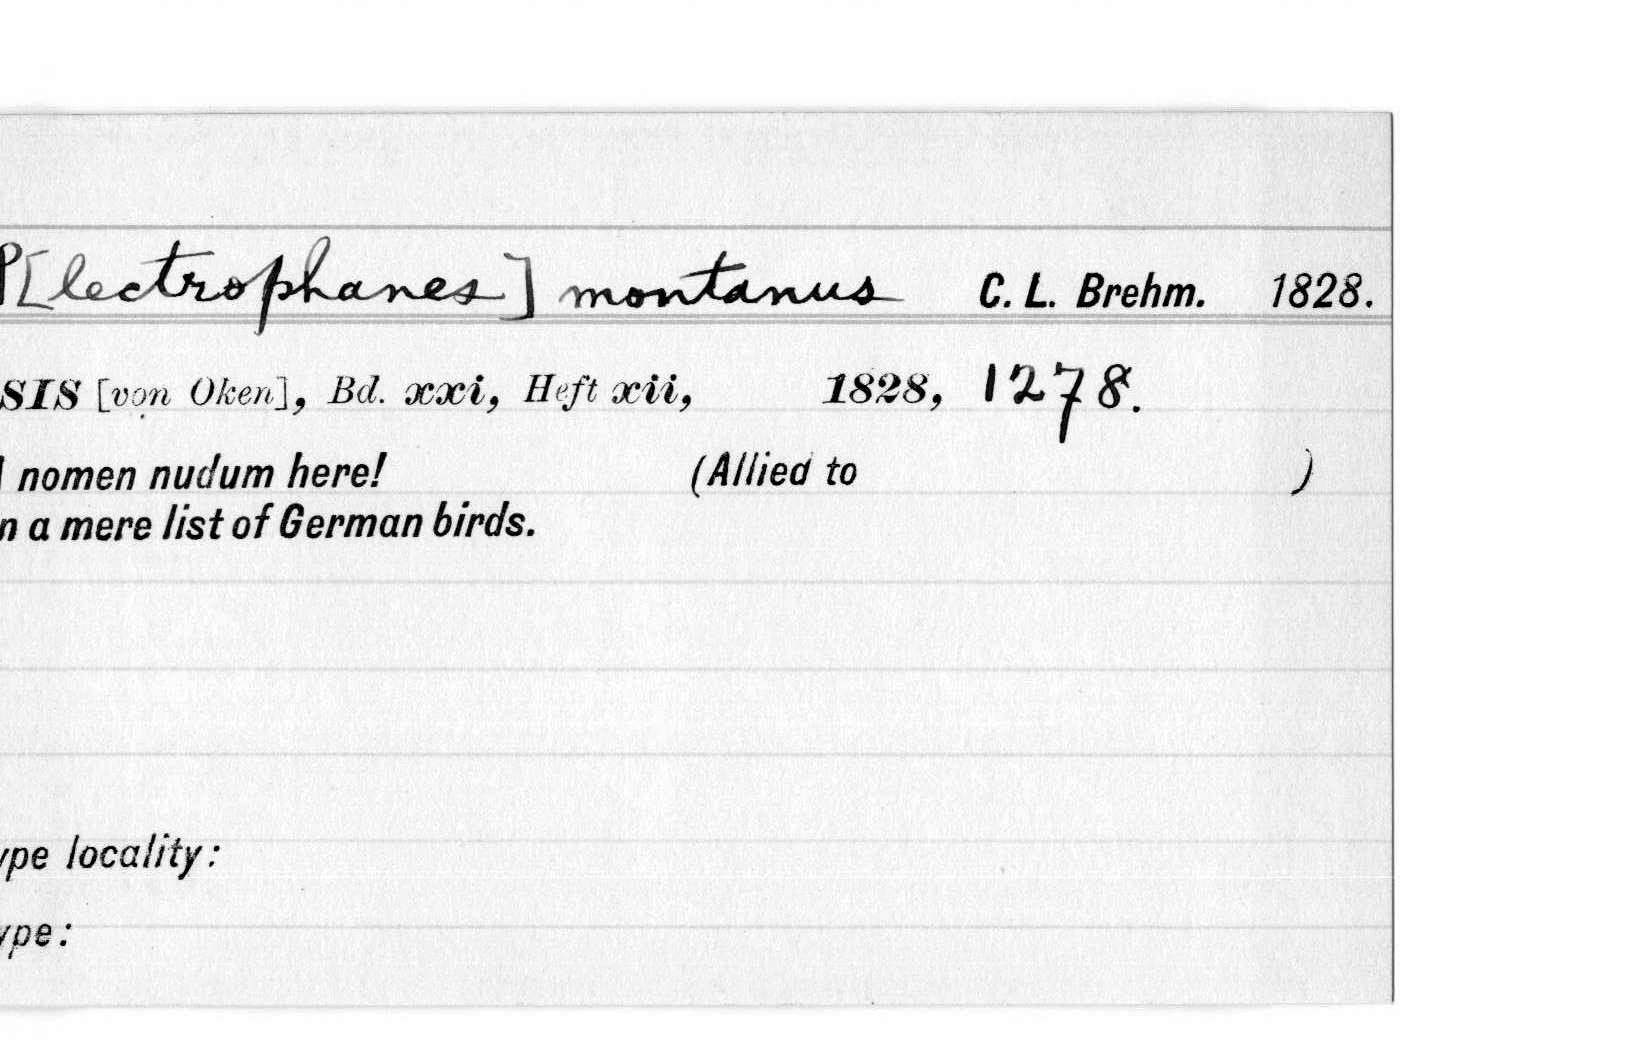 P[lectrophanes] montanus C. L. Brehm. 1828.
SIS [von Oken], Bd. xxi, Heft xii, 1828, 1278.
nomen nudum here! (Allied to )
n a mere list of German birds.
ype locality:
ype: